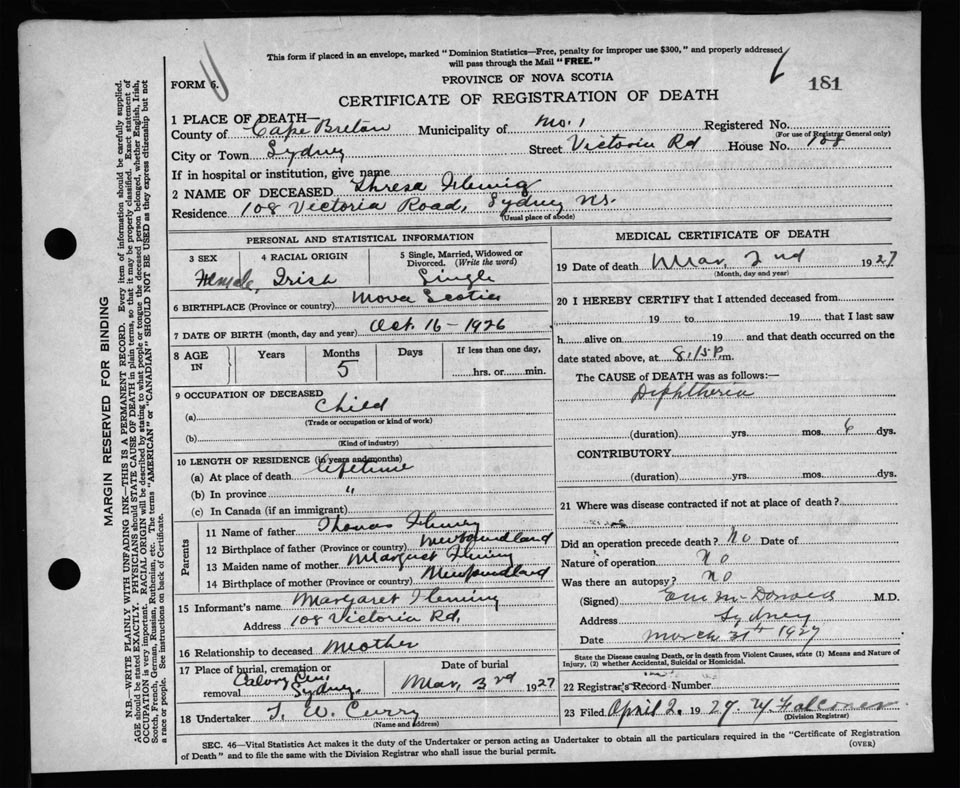 This form if placed in an envelope, marked "Dominion Statistics—Free, penalty for improper use $300," and properly addressed
will pass through the Mail "FREE."
FORM 6.
PROVINCE OF NOVA SCOTIA
181
CERTIFICATE OF REGISTRATION OF DEATH
1 PLACE OF DEATH—
County of Cape Breton Municipality of No. 1 Registered No.
(For use of Registrar General only)
City or Town Sydney Street Victoria Rd House No. 108
If in hospital or institution, give name
2 NAME OF DECEASED Thresa Flemig
Residence 108 Victoria Road, Sydney N.S.
(Usual place of abode)
PERSONAL AND STATISTICAL INFORMATION
3 SEX 4 RACIAL ORIGIN 5 Single, Married, Widowed or
Divorced. (Write the word)
Female, Irish Single
6 BIRTHPLACE (Province or country) Nova Scotia
7 DATE OF BIRTH (month, day and year) Oct. 16 - 1926
8 AGE IN Years Months Days If less than one day,
5 hrs. or min.
9 OCCUPATION OF DECEASED
(a) Child
(Trade or occupation or kind of work)
(b)
(Kind of industry)
10 LENGTH OF RESIDENCE (in years and months)
(a) At place of death lifetime
(b) In province "
(c) In Canada (if an immigrant)
Parents
11 Name of father Thomas Fleming
12 Birthplace of father (Province or country) Newfoundland
13 Maiden name of mother Margaret Fleming
14 Birthplace of mother (Province or country) Newfoundland
15 Informant's name Margaret Fleming
Address 108 Victoria Rd,
16 Relationship to deceased Mother
17 Place of burial, cremation or Date of burial
removal Calvary Cem. Sydney. Mar, 3rd 1927
18 Undertaker T. W. Curry
(Name and address)
MEDICAL CERTIFICATE OF DEATH
19 Date of death Mar, 2nd 1927
(Month, day and year)
20 I HEREBY CERTIFY that I attended deceased from
19 to 19 that I last saw
h alive on 19 and that death occurred on the
date stated above, at 8.15 P m.
The CAUSE of DEATH was as follows:—
Diphtheria
(duration) yrs. mos. 6 dys.
CONTRIBUTORY
(duration) yrs. mos. dys.
21 Where was disease contracted if not at place of death?
Did an operation precede death? No Date of
Nature of operation No
Was there an autopsy? No
(Signed) McDonald M.D.
Address Sydney
Date March 31st 1927
State the Disease causing Death, or in death from Violent Causes, state (1) Means and Nature of
Injury, (2) whether Accidental, Suicidal or Homicidal.
22 Registrar's Record Number
23 Filed April 2. 1927 Falconer
(Division Registrar)
SEC. 46—Vital Statistics Act makes it the duty of the Undertaker or person acting as Undertaker to obtain all the particulars required in the "Certificate of Registration
of Death" and to file the same with the Division Registrar who shall issue the burial permit.
(OVER)
MARGIN RESERVED FOR BINDING
N.B.—WRITE PLAINLY WITH UNFADING INK—THIS IS A PERMANENT RECORD. Every item of information should be carefully supplied.
AGE should be stated EXACTLY. PHYSICIANS should STATE CAUSE OF DEATH in plain terms, so that it may be properly classified. Exact statement of
OCCUPATION is very important. RACIAL ORIGIN will be described by stating to what people or tongue the deceased person belonged, whether English, Irish,
Scotch, French, German, Russian, Ruthenian, etc. The terms "AMERICAN" or "CANADIAN" SHOULD NOT BE USED as they express citizenship but not
a race or people. See instructions on back of Certificate.